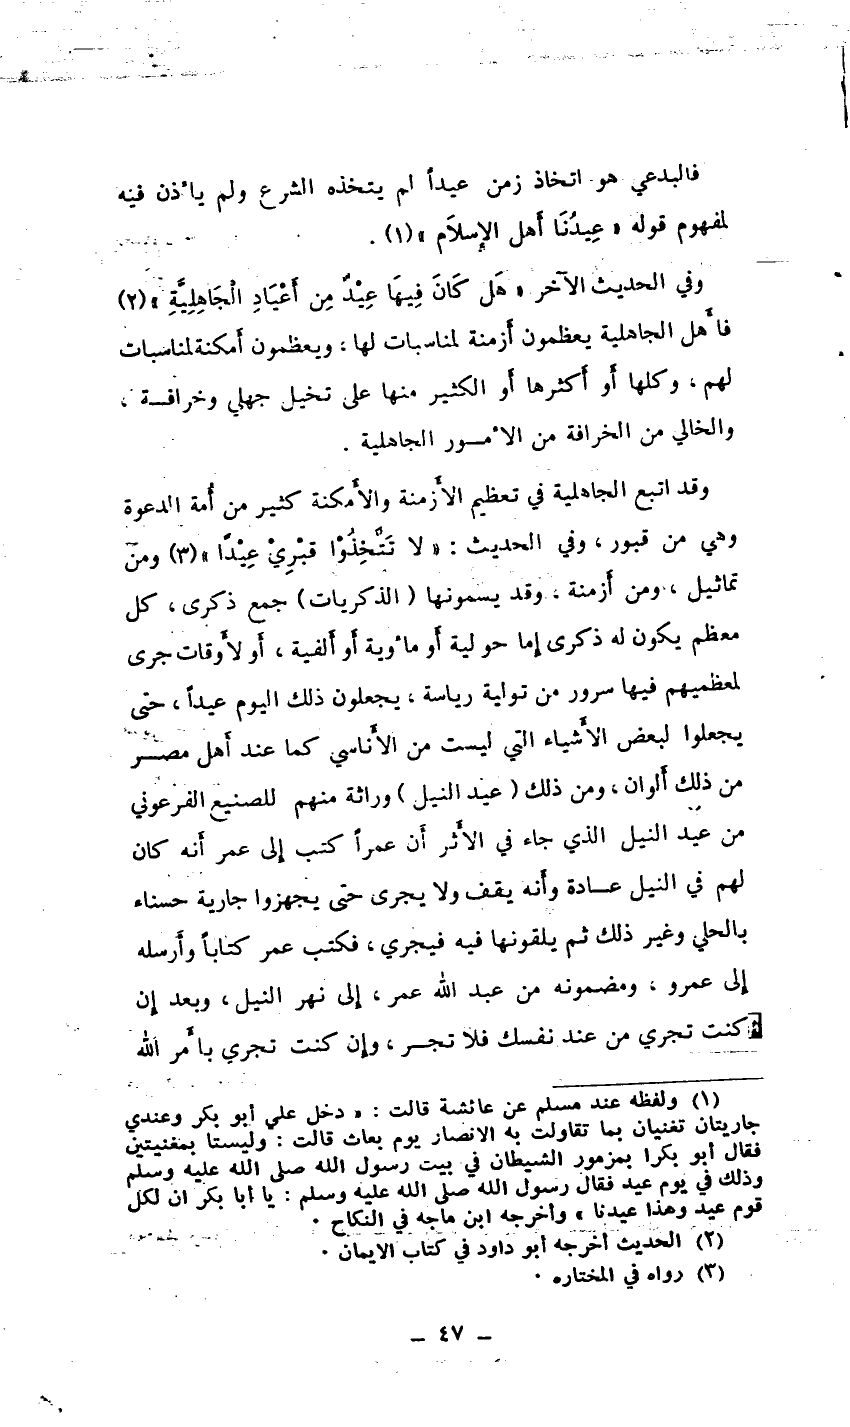 فالبدعي هو اتخاذ زمن عيداً لم يتخذه الشرع ولم يأذن فيه
لمفهوم قوله « عِيدُنَا أهل الإِسلاَم »(١) .
وفي الحديث الآخر « هَل كَانَ فِيهَا عِيْدٌ مِن أَعْيَادِ الْجَاهِلِيَّةِ »(٢)
فأهل الجاهلية يعظمون أزمنة لمناسبات لها ، ويعظمون أمكنة لمناسبات
لهم ، وكلها أو أكثرها أو الكثير منها على تخيل جهلي وخرافـة ،
والخالي من الخرافة من الأمـور الجاهلية .
وقد اتبع الجاهلية في تعظيم الأزمنة والأمكنة كثير من أمة الدعوة
وهي من قبور ، وفي الحديث : « لا تَتَّخِذُوْا قبْرِيْ عِيْدًا »(٣) ومن
تماثيل ، ومن أزمنة ، وقد يسمونها ( الذكريات ) جمع ذكرى ، كل
معظم يكون له ذكرى إما حولية أو مأوية أو ألفية ، أو لأوقات جرى
لمعظميهم فيها سرور من تولية رياسة ، يجعلون ذلك اليوم عيداً ، حتى
يجعلوا لبعض الأشياء التي ليست من الأناسي كما عند أهل مصـر
من ذلك ألوان ، ومن ذلك ( عيد النيل ) وراثة منهم للصنيع الفرعوني
من عيد النيل الذي جاء في الأثر أن عمراً كتب إلى عمر أنه كان
لهم في النيل عـادة وأنه يقف ولا يجرى حتى يجهزوا جارية حسناء
بالحلي وغير ذلك ثم يلقونها فيه فيجري ، فكتب عمر كتاباً وأرسله
إلى عمرو ، ومضمونه من عبد الله عمر ، إلى نهر النيل ، وبعد إن
كنت تجري من عند نفسك فلا تجـر ، وإن كنت تجري بأمر الله
(١) ولفظه عند مسلم عن عائشة قالت : « دخل علي أبو بكر وعندي
جاريتان تغنيان بما تقاولت به الانصار يوم بعاث قالت : وليستا بمغنيتين
فقال أبو بكرا بمزمور الشيطان في بيت رسول الله صلى الله عليه وسلم
وذلك في يوم عيد فقال رسول الله صلى الله عليه وسلم : يا أبا بكر ان لكل
قوم عيد وهذا عيدنا » وأخرجه ابن ماجه في النكاح .
(٢) الحديث أخرجه أبو داود في كتاب الايمان .
(٣) رواه في المختاره .
– ٤٧ –